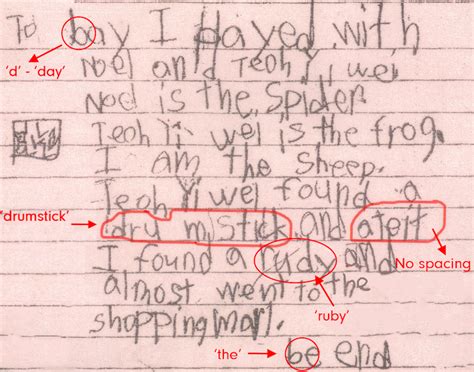 To bay I played with
'd' - 'day'
Noel and Teoh Yi wei
Noel is the Spider
Teoh Yi wei is the frog.
I am the Sheep.
Teoh Yi wei found a
'drumstick' dru mstick and ateit
I found a rudy and No spacing
almost went to the 'ruby'
shoppingmall.
'the' be end